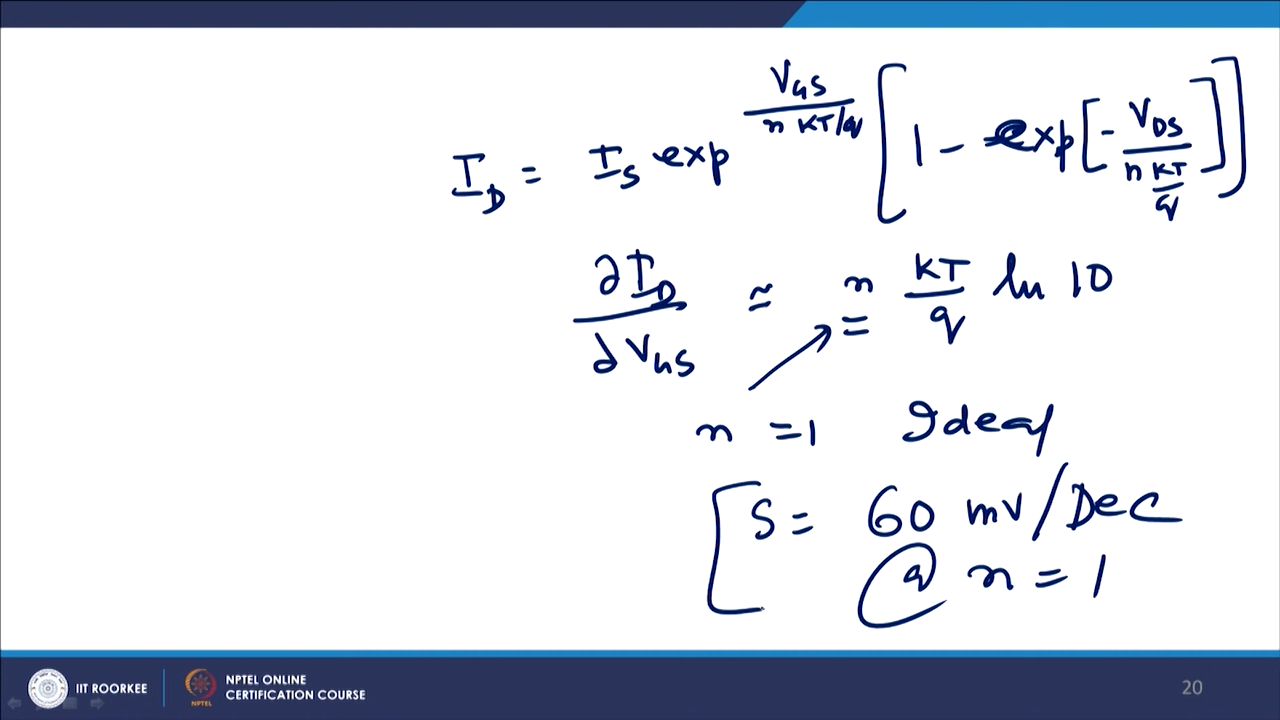 I_D = I_S exp^{V_{GS} / (n KT/q)} [1 - exp[- V_{DS} / (n KT/q)]]
∂I_D / ∂V_{GS} ≃ n KT/q ln 10
n = 1 Ideal
S = 60 mV/Dec
@ n = 1
IIT ROORKEE
NPTEL
NPTEL ONLINE
CERTIFICATION COURSE
20